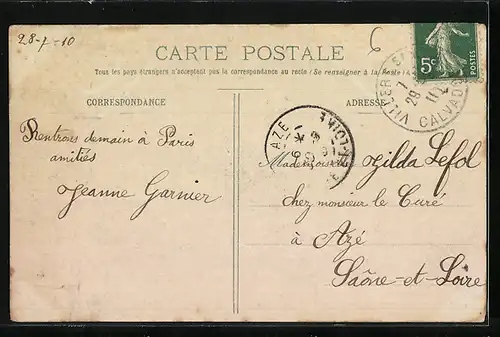 28-7-10
6
CARTE POSTALE
Tous les pays étrangers n'acceptent pas la correspondance au recto (Se renseigner à la Poste)
CORRESPONDANCE
ADRESSE
5c
POSTES
CALVADOS
AZE
Rentrons demain à Paris
amitiés
Jeanne Garnier
Mademoiselle Gilda Lefol
chez monsieur le Curé
à Azé
Saône-et-Loire